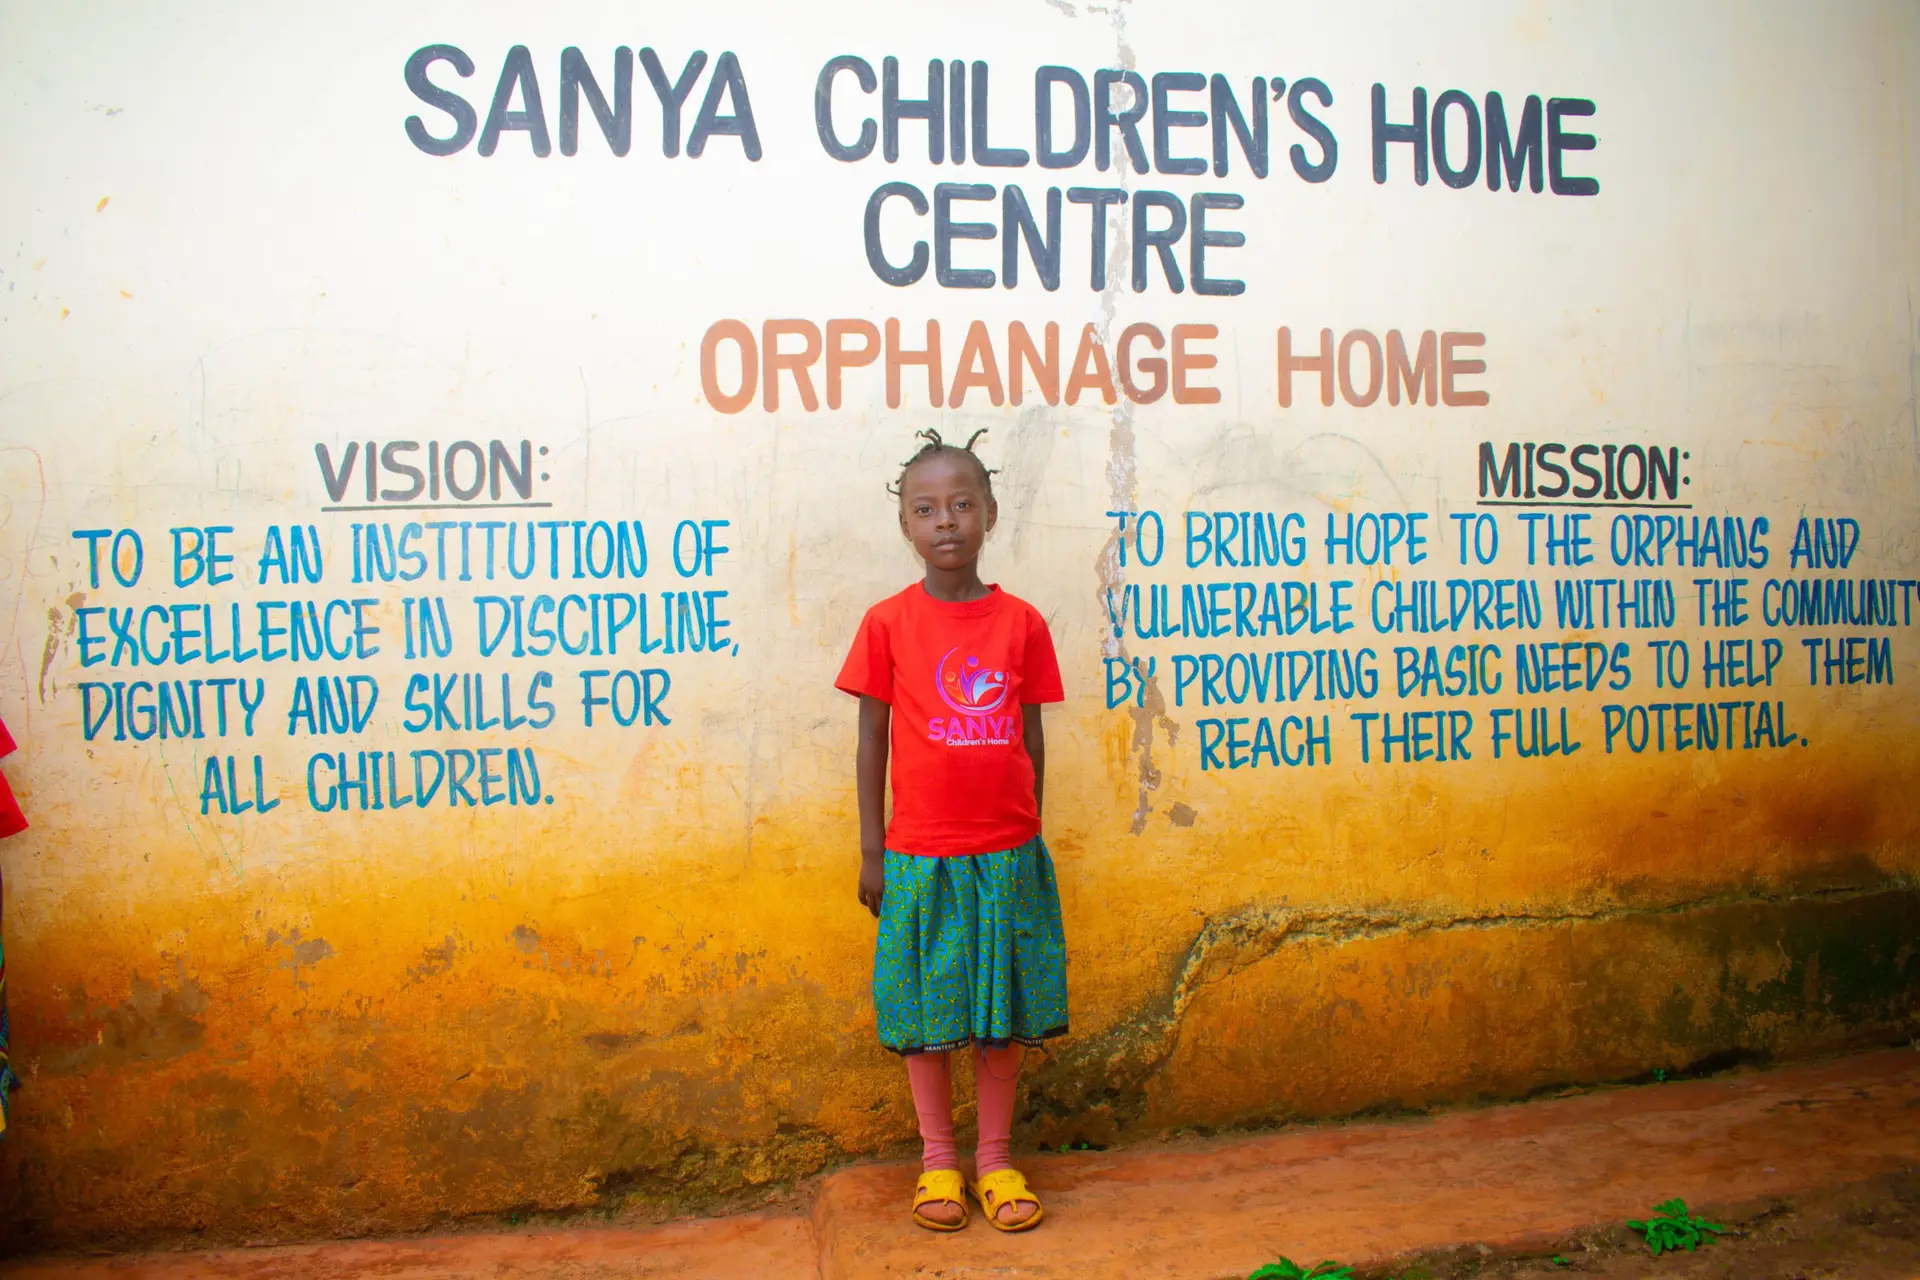 SANYA CHILDREN'S HOME
CENTRE
ORPHANAGE HOME
VISION:
TO BE AN INSTITUTION OF
EXCELLENCE IN DISCIPLINE,
DIGNITY AND SKILLS FOR
ALL CHILDREN.
MISSION:
TO BRING HOPE TO THE ORPHANS AND
VULNERABLE CHILDREN WITHIN THE COMMUNITY
BY PROVIDING BASIC NEEDS TO HELP THEM
REACH THEIR FULL POTENTIAL.
SANYA
Children's Home